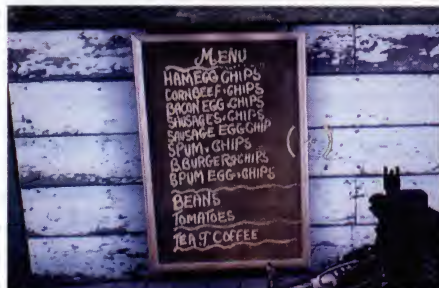 MENU
HAM EGG CHIPS
CORNBEEF. CHIPS
BACON EGG. CHIPS
SAUSAGES. CHIPS
SAUSAGE EGG CHIP
SPUM. CHIPS
B.BURGERS CHIPS
SPUM EGG. CHIPS
BEANS
TOMATOES
TEA & COFFEE